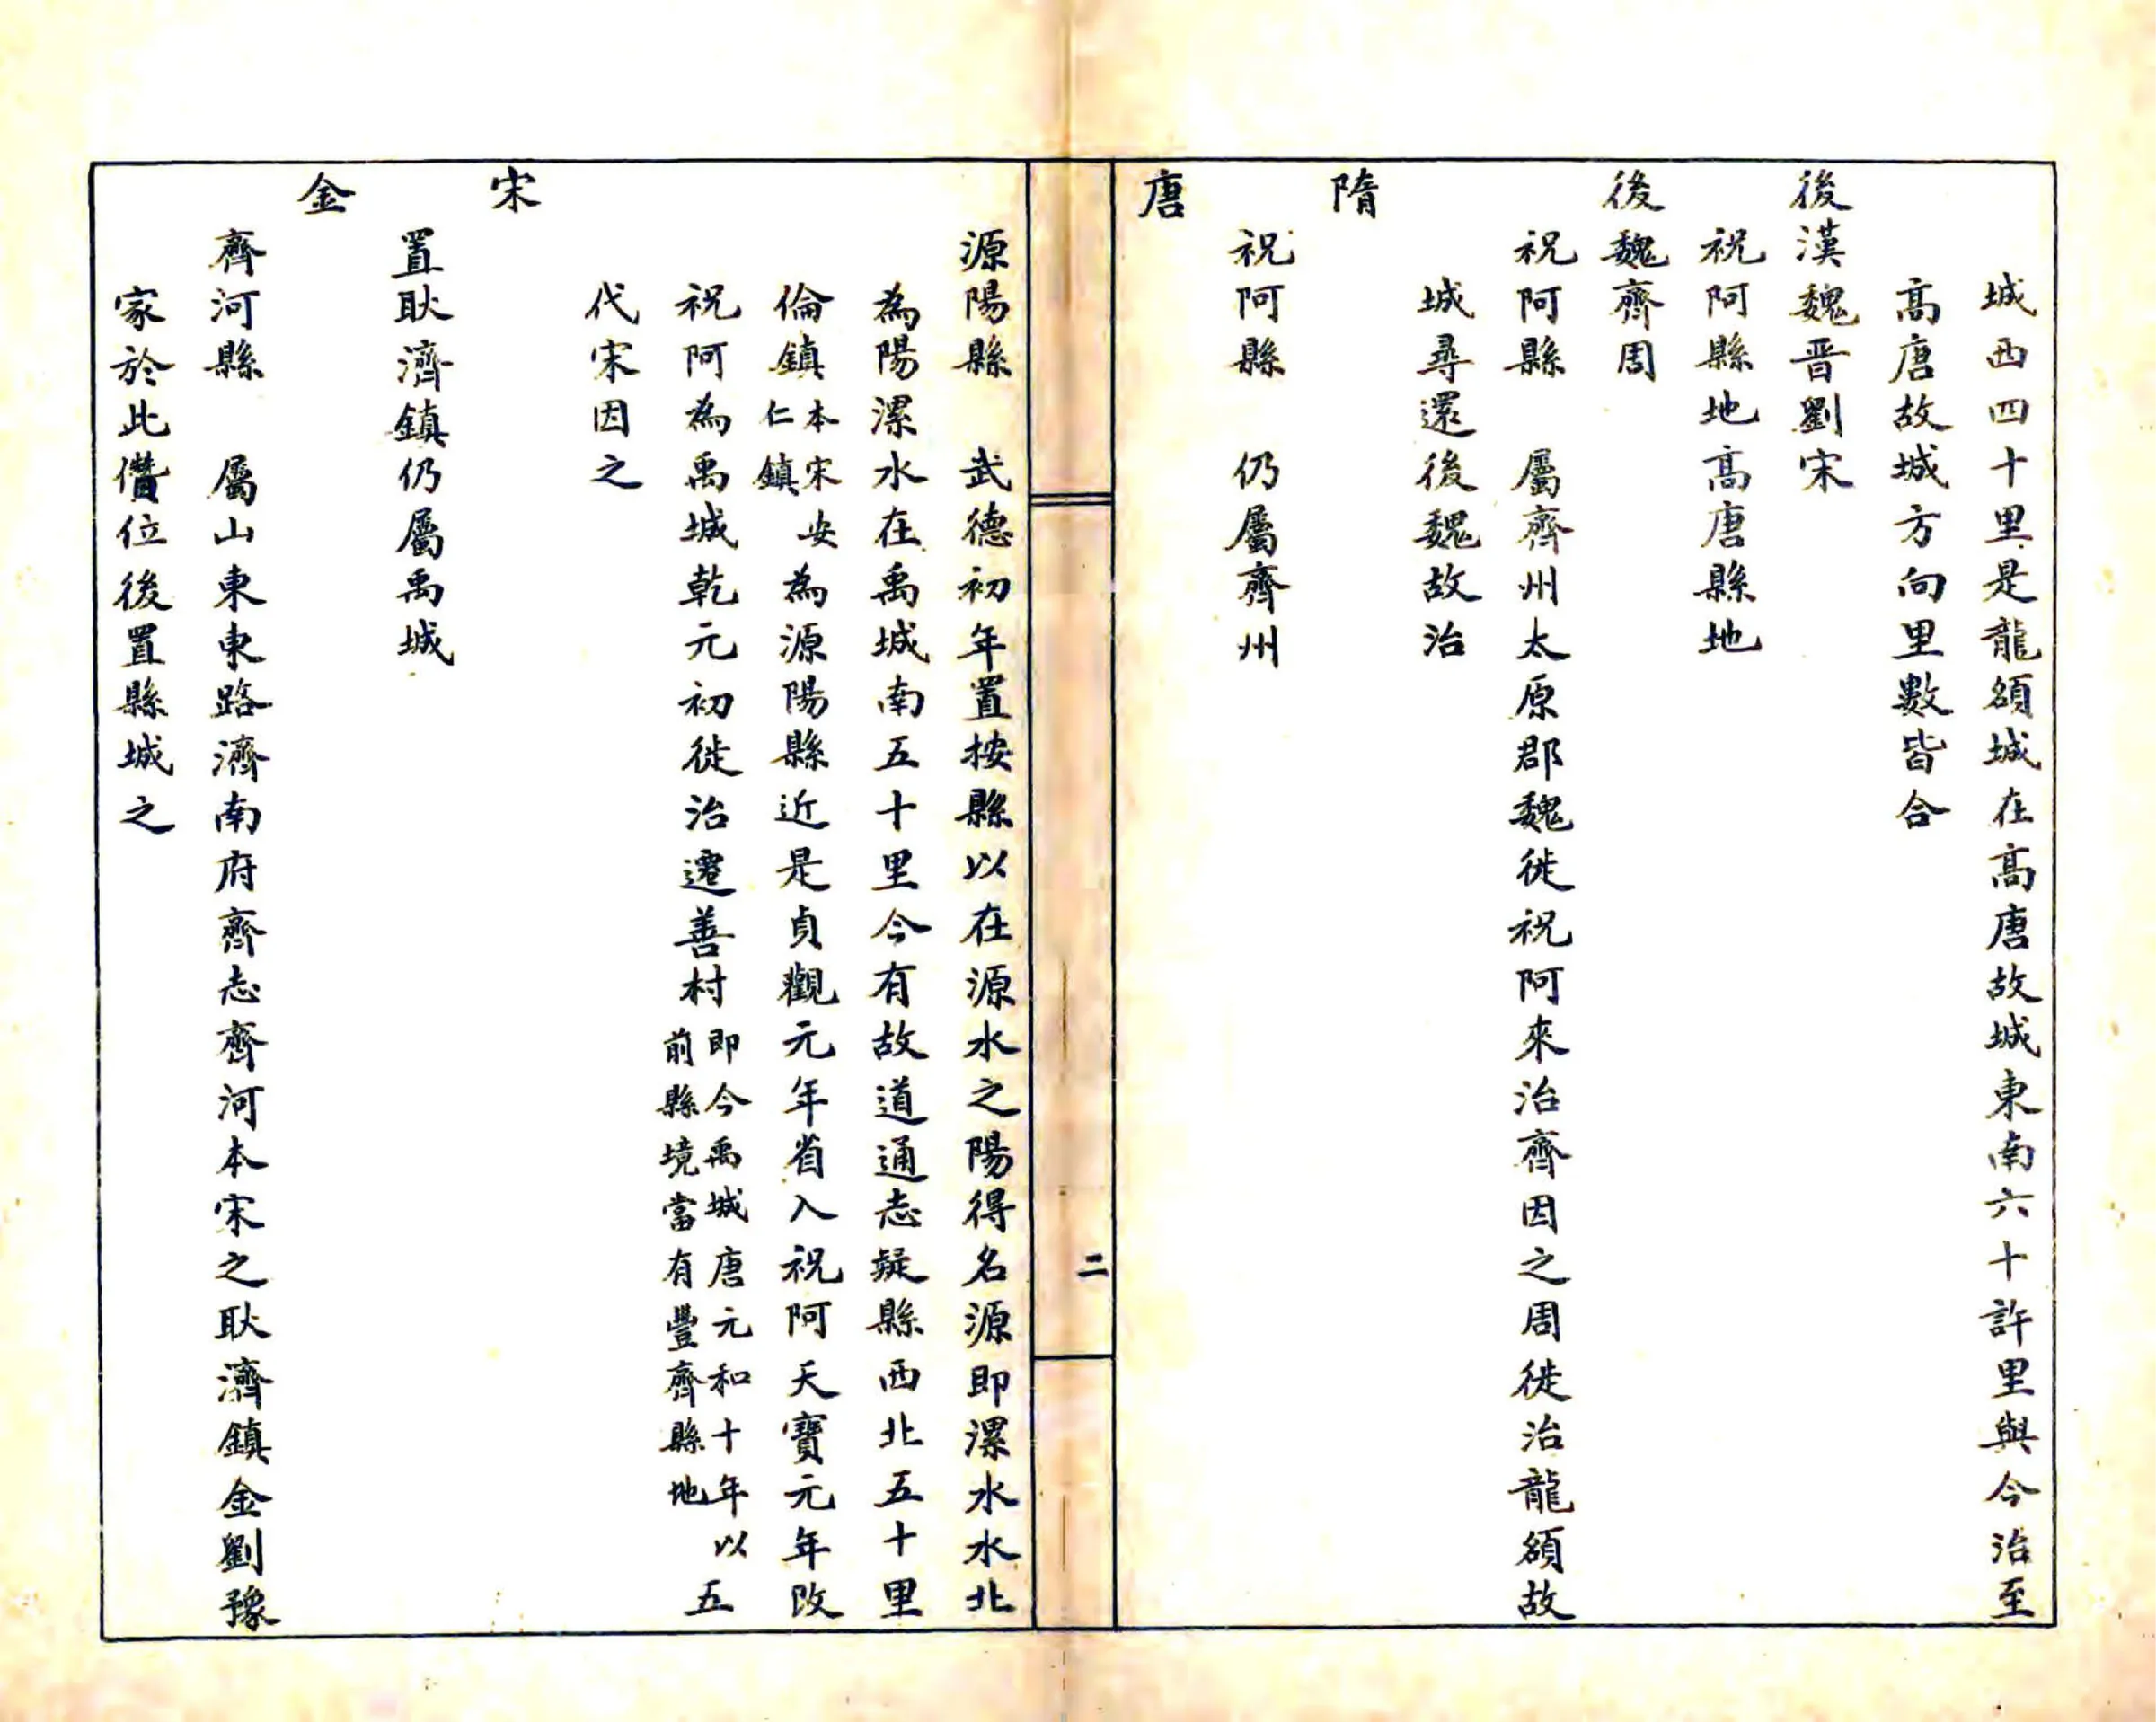 城西四十里是龍頟城在高唐故城東南六十許里與今治至
高唐故城方向里數皆合
後漢魏晋劉宋
祝阿縣地高唐縣地
後魏齊周
祝阿縣　屬齊州太原郡魏徙祝阿來治齊因之周徙治龍頟故
城尋還後魏故治
隋
祝阿縣　仍屬齊州
唐
二
源陽縣　武德初年置按縣以在源水之陽得名源即漯水水北
為陽漯水在禹城南五十里今有故道通志疑縣西北五十里
倫鎮本宋安仁鎮為源陽縣近是貞觀元年省入祝阿天寶元年改
祝阿為禹城乾元初徙治遷善村即今禹城唐元和十年以前縣境當有豐齊縣地五
代宋因之
宋
置耿濟鎮仍屬禹城
金
齊河縣　屬山東東路濟南府齊志齊河本宋之耿濟鎮金劉豫
家於此僭位後置縣城之